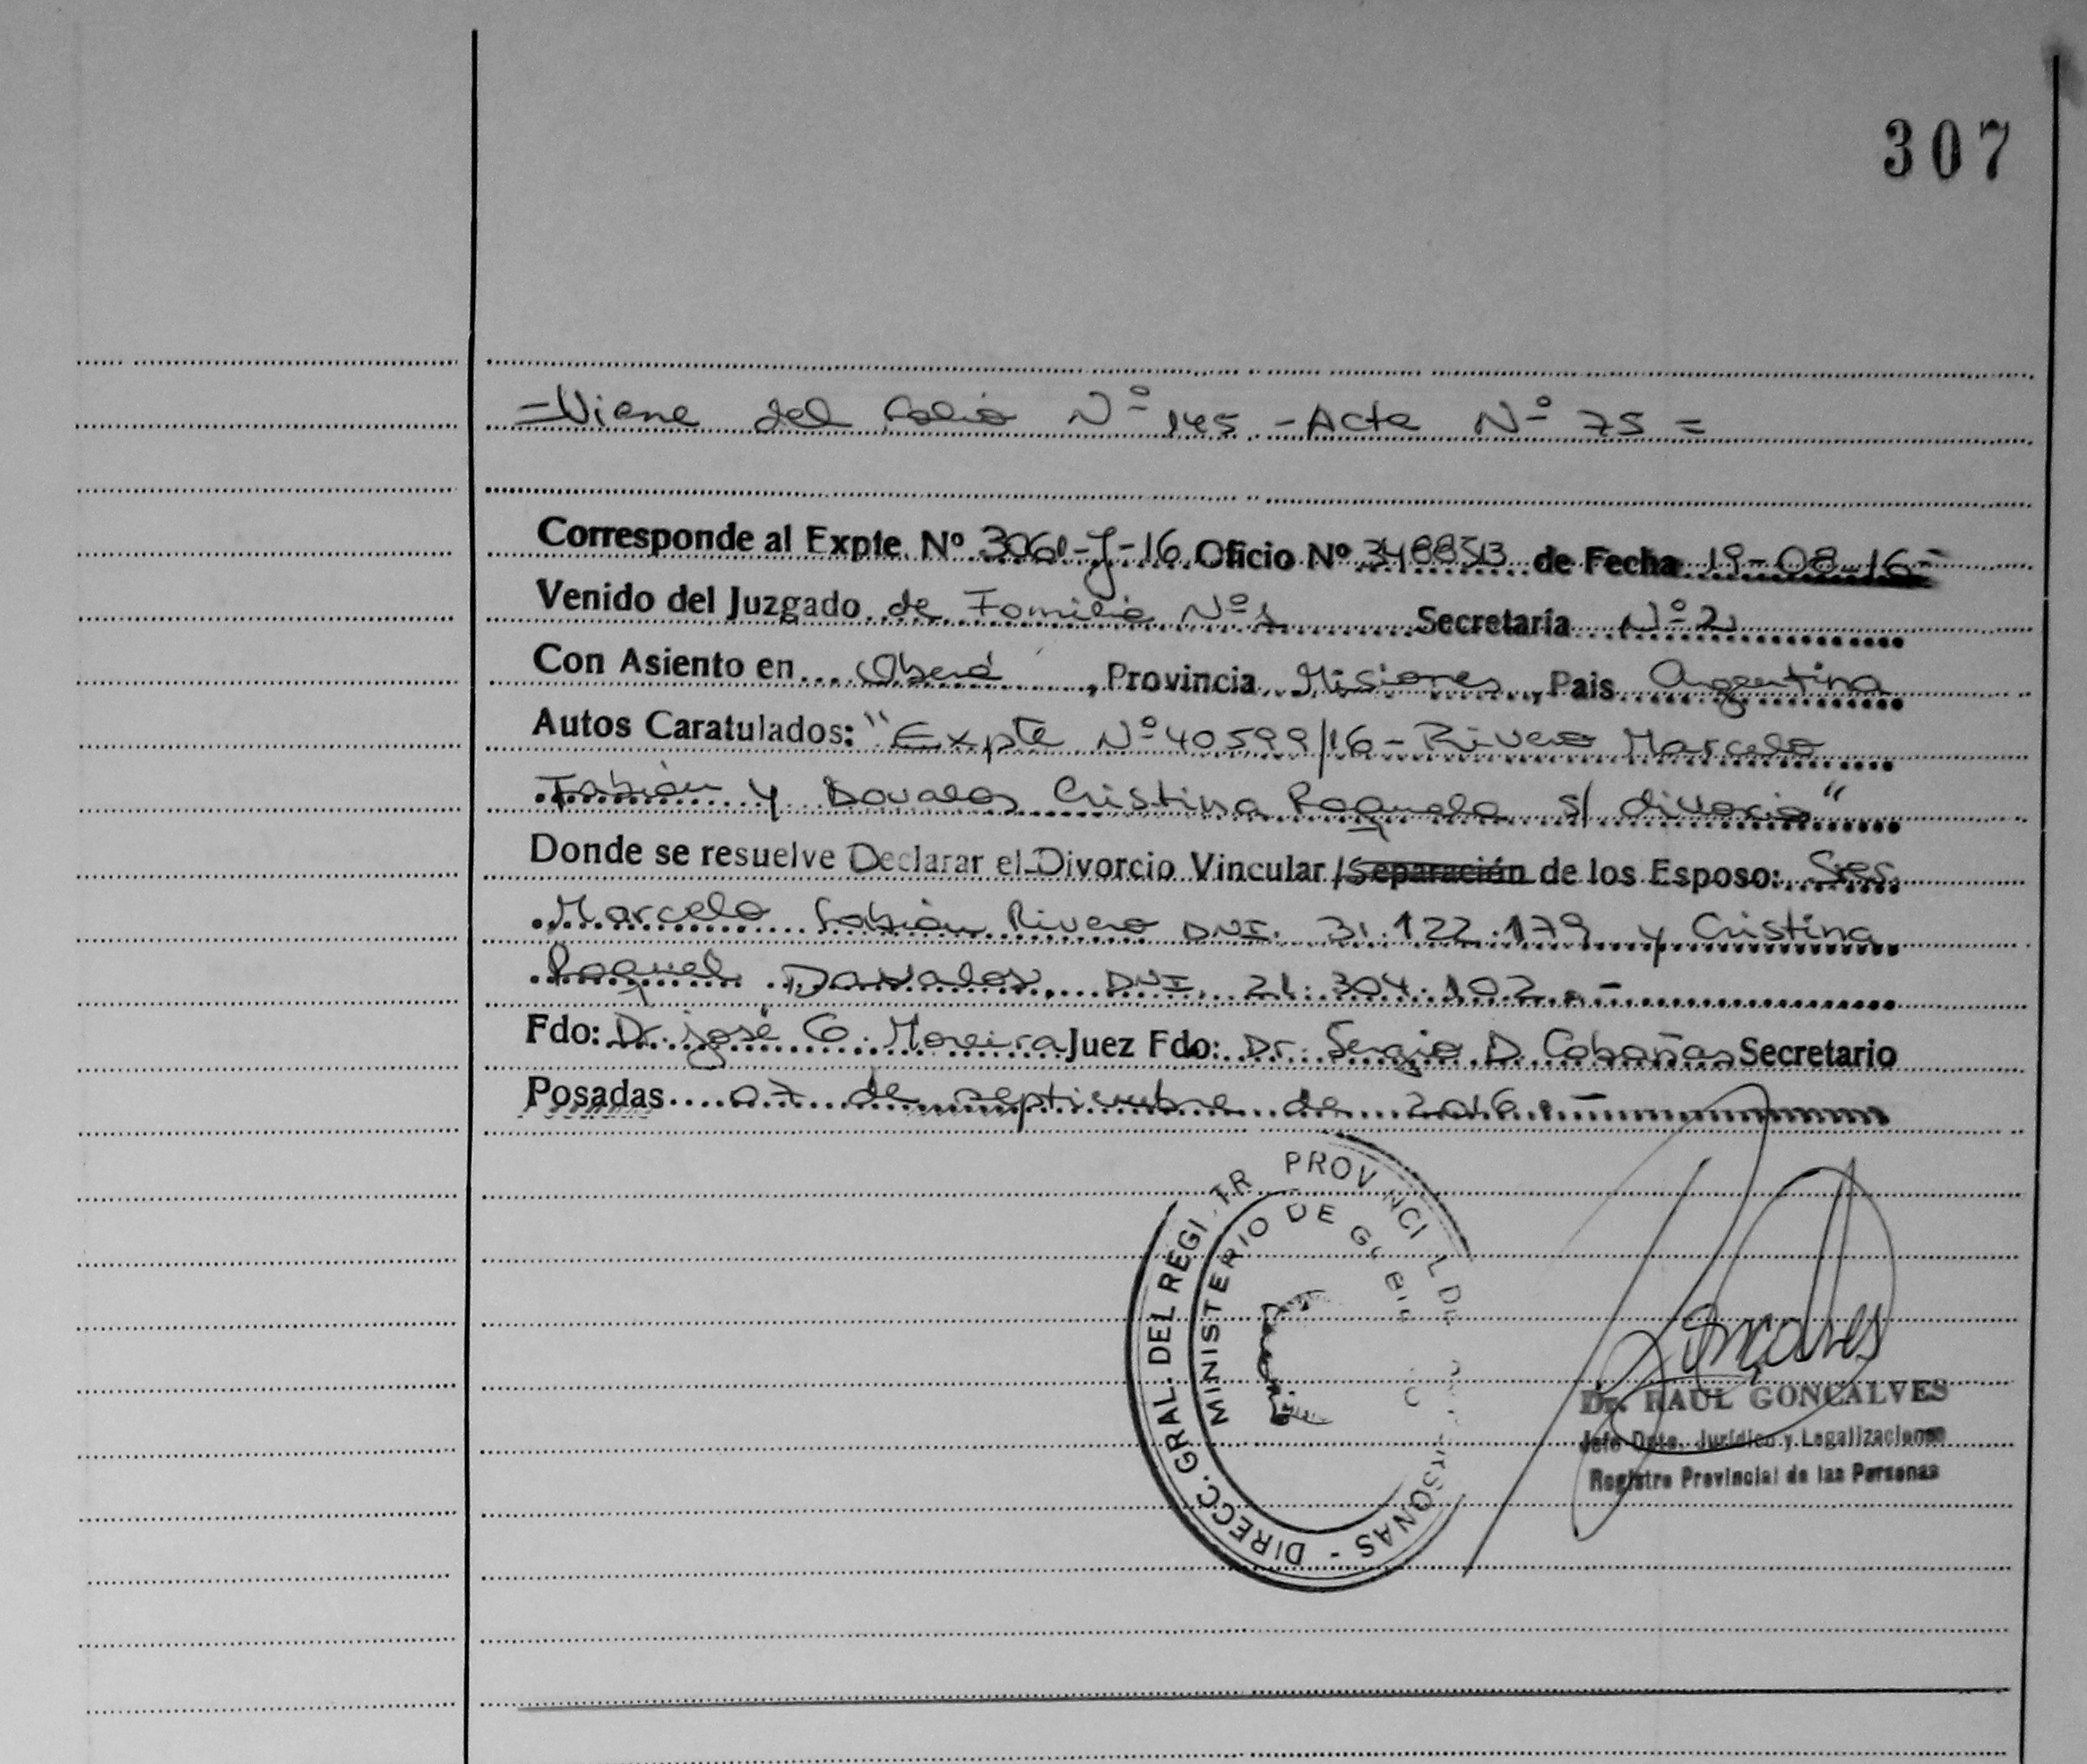 307
=Viene del folio Nº 145 - Acta Nº 75 =
Corresponde al Expte. Nº 3060-J-16 Oficio Nº 3488513 de Fecha 19-08-16-
Venido del Juzgado de Familia Nº 1 Secretaria Nº 2
Con Asiento en Oberá, Provincia Misiones, Pais Argentina
Autos Caratulados: "Expte Nº 40599/16 - Rivero Marcelo
Fabián y Davalos Cristina Raquela s/ divorcio"
Donde se resuelve Declarar el Divorcio Vincular /Separación de los Esposo: Sres.
Marcelo Fabián Rivero DNI. 31.122.179 y Cristina
Raquel Davalos, DNI. 21.304.102.-
Fdo: Dr. José G. Moreira Juez Fdo: Dr. Sergio D. Cabañas Secretario
Posadas 07 de septiembre de 2016.-
DIRECC. GRAL. DEL REGI TR PROV NCI L DE RSONAS -
MINISTERIO DE
Dr. RAUL GONCALVES
Jefe Dpto. Jurídico y Legalizaciones
Registro Provincial de las Personas